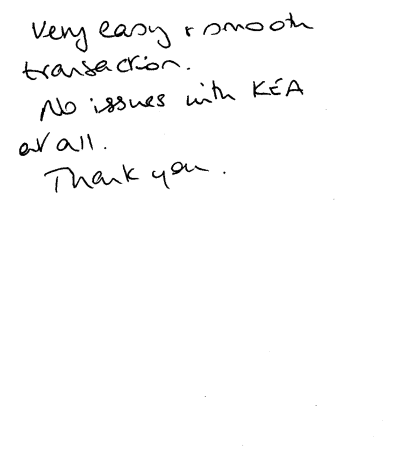 Very easy + smooth
transaction.
No issues with KEA
at all.
Thank you.